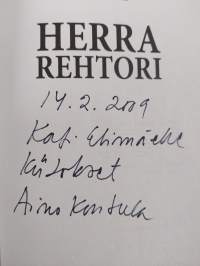 HERRA
REHTORI
14.2.2009
Kati Elimäelle
Kiitokset
Aimo Kontula